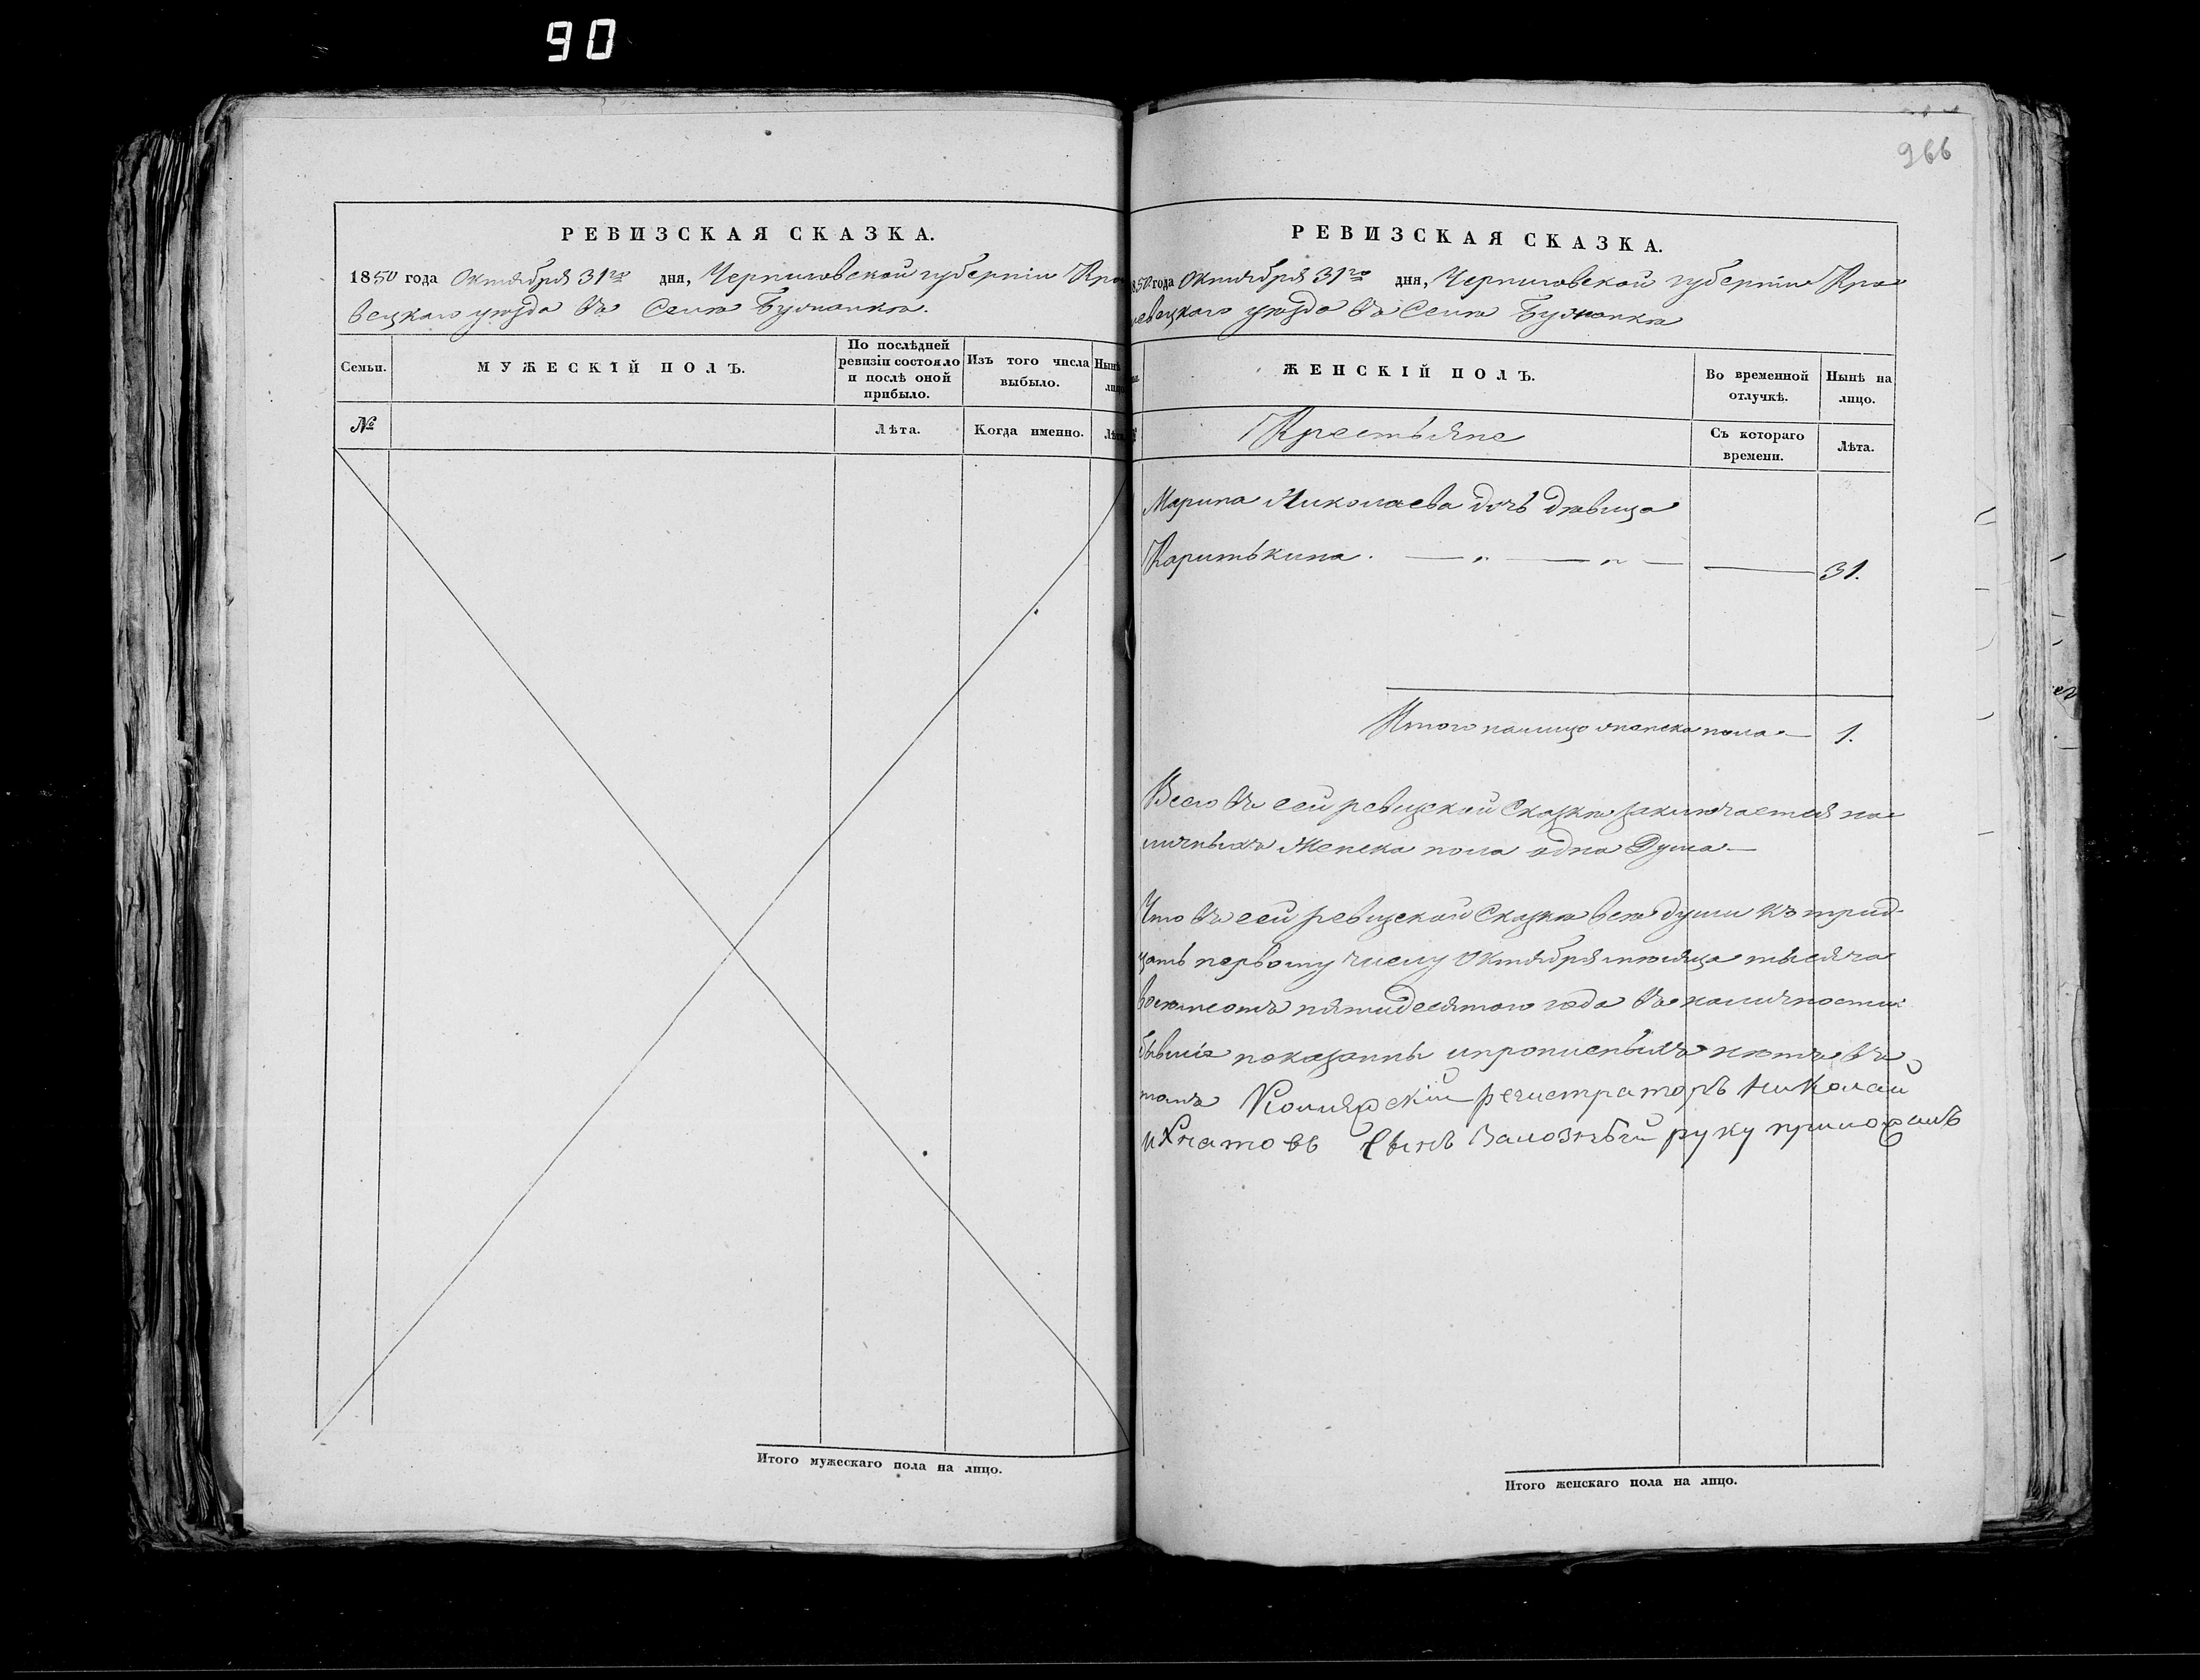 90
966
РЕВИЗСКАЯ СКАЗКА.
1850 года Октября 31го дня, Черниговской губерніи Кро
вецкаго уѣзда Въ Селѣ
Семьи.
МУЖЕСКІЙ ПОЛЪ.
По послѣдней ревизіи состояло и послѣ оной прибыло.
Изъ того числа выбыло.
Нынѣ
лицо
№
Лѣта.
Когда именно.
Лѣта
Итого мужескаго пола на лицо.
РЕВИЗСКАЯ СКАЗКА.
850 года Октября 31го дня, Черниговской губерніи Кро
левецкаго уѣзда Въ Селѣ
ЖЕНСКІЙ ПОЛЪ.
Во временной отлучкѣ.
Нынѣ на лицо.
Крестьяне
Съ котораго времени.
Лѣта.
Марина Николаева дочь дѣвица
Каритькина. — „ — „ — — 31.
Итого налицо женска пола — 1.
Всего Въ сей ревизской Сказкѣ заключается на
личныхъ Женска пола одна Душа —
Что Въ сей ревизской Сказкѣ всѣ души къ трид-
цать первому числу Октября мѣсяца тысяча
восемсотъ пятидесятого года Въ наличности
бывшіе показанны и прописныхъ нѣтъ въ
томъ Коллежскій регистраторъ Николай
сынъ руку приложилъ
Итого женскаго пола на лицо.